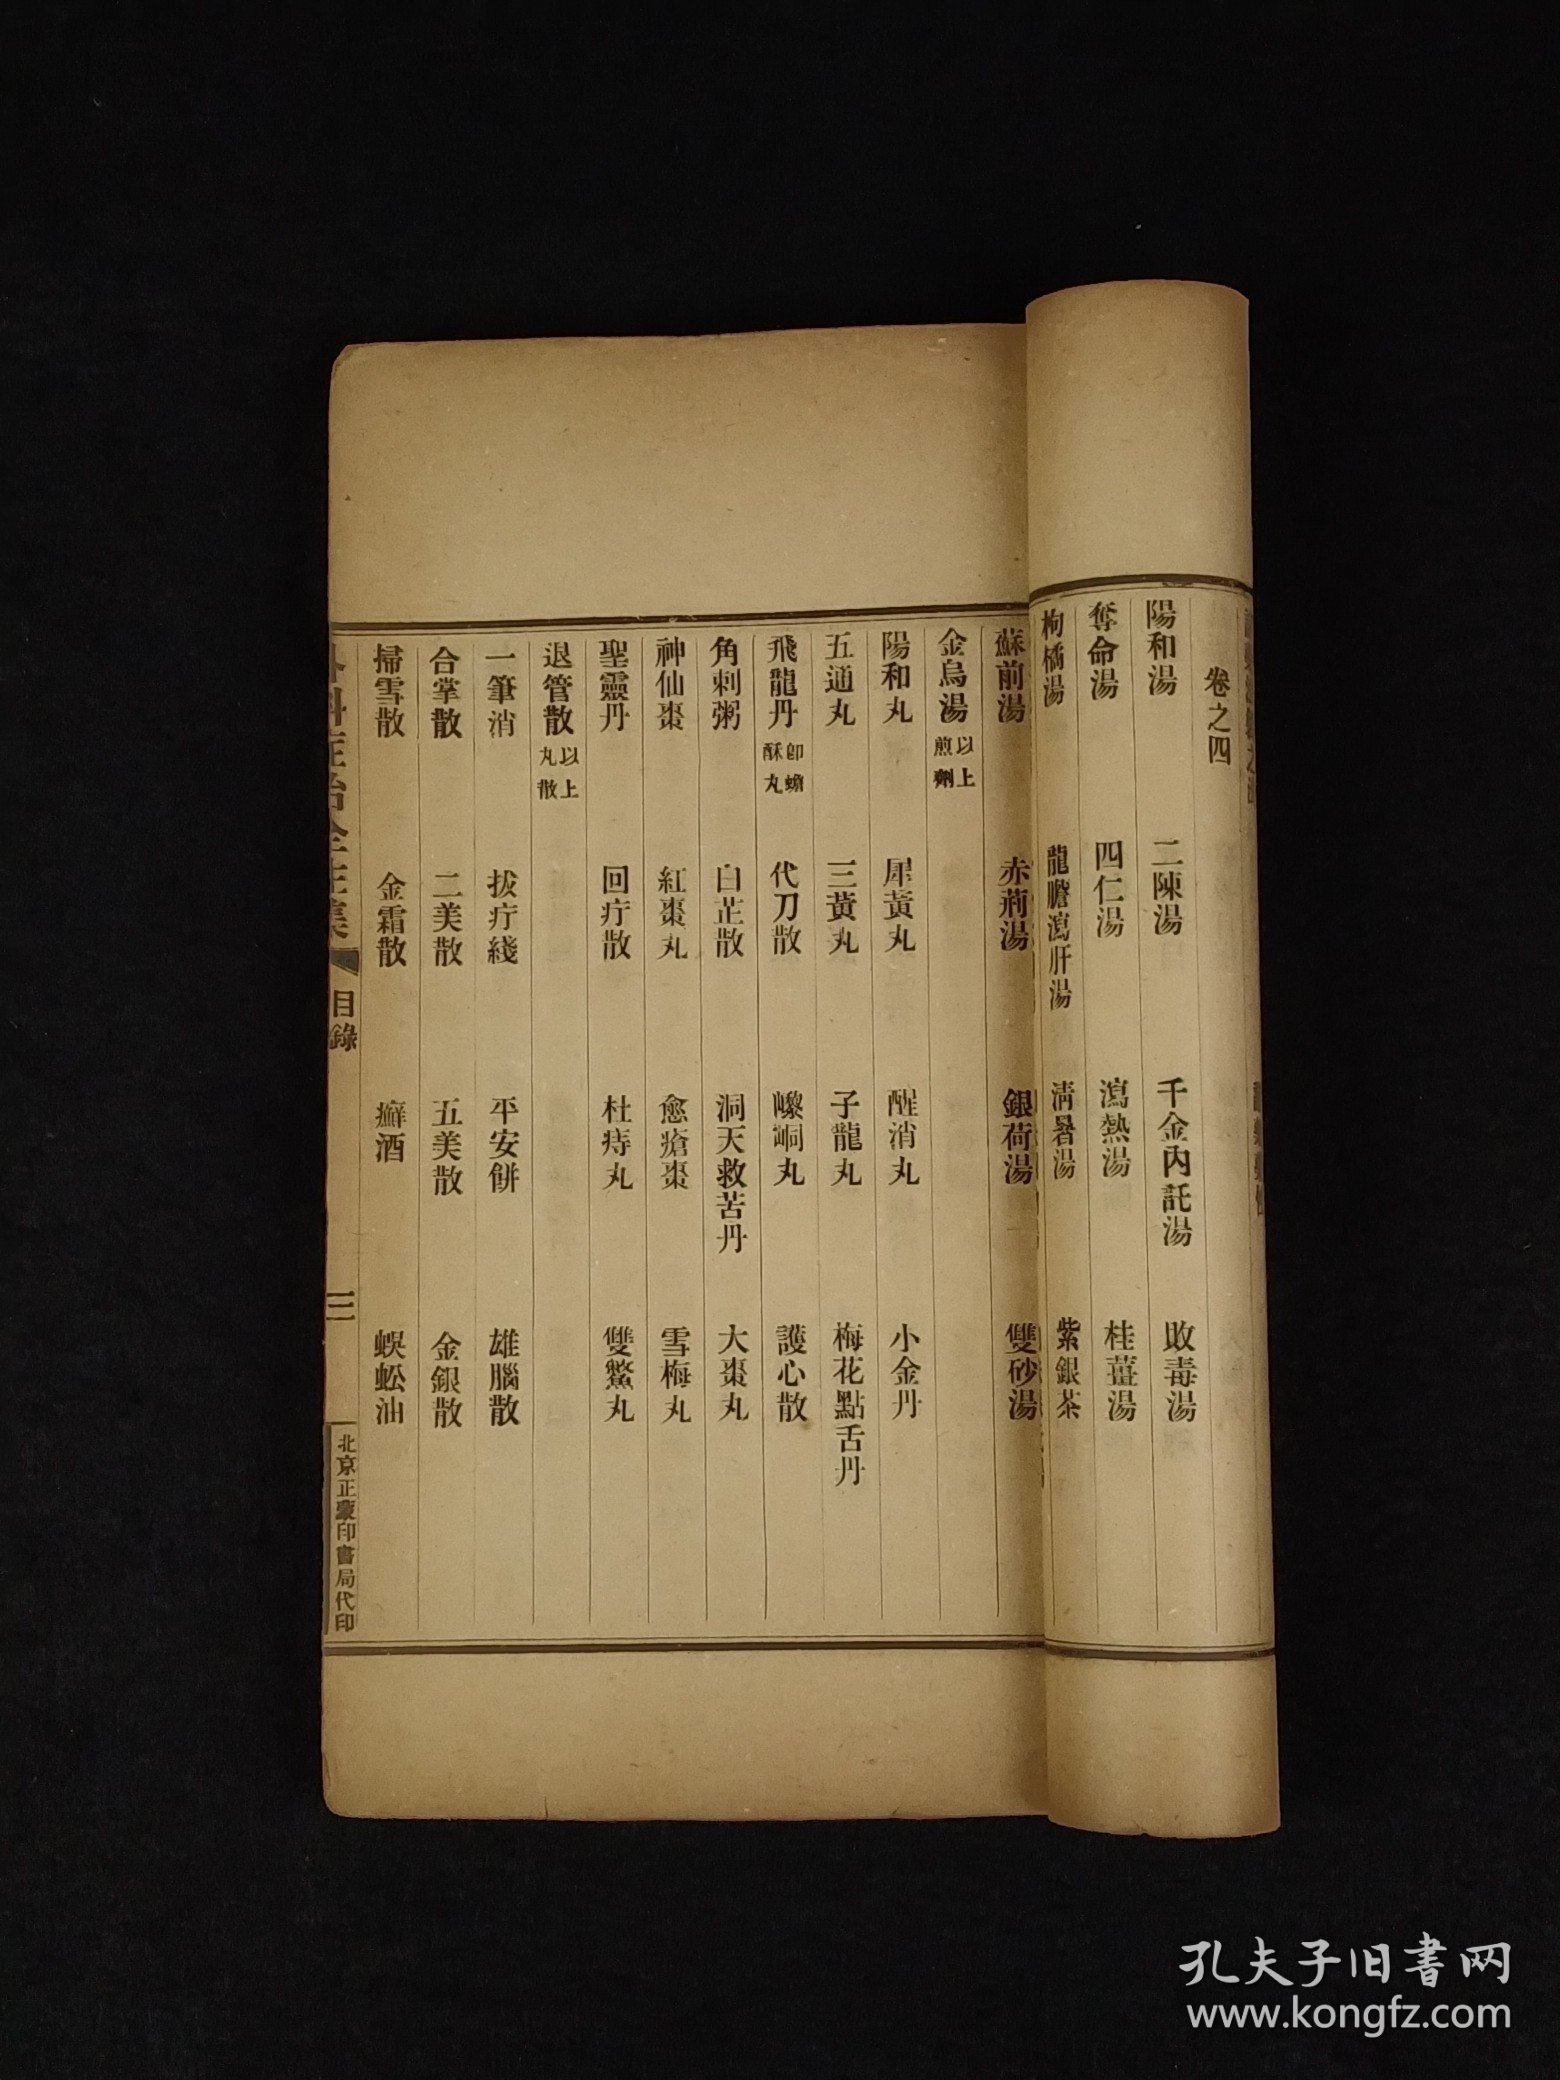 卷之四
陽和湯 二陳湯 千金內託湯 敗毒湯
奪命湯 四仁湯 瀉熱湯 桂薑湯
枸橘湯 龍膽瀉肝湯 清暑湯 紫銀茶
蘇前湯 赤荊湯 銀荷湯 雙砂湯
金烏湯 以上煎劑
陽和丸 犀黃丸 醒消丸 小金丹
五通丸 三黃丸 子龍丸 梅花點舌丹
飛龍丹 卽蟾酥丸 代刀散 嶑峒丸 護心散
角刺粥 白芷散 洞天救苦丹 大棗丸
神仙棗 紅棗丸 愈瘡棗 雪梅丸
聖靈丹 回疔散 杜痔丸 雙鱉丸
退管散 以上丸散
一筆消 拔疔綫 平安餅 雄腦散
合掌散 二美散 五美散 金銀散
掃雪散 金霜散 癬酒 蜈蚣油
外科症治全生集 目錄 三 北京正蒙印書局代印
孔夫子旧書网
www.kongfz.com